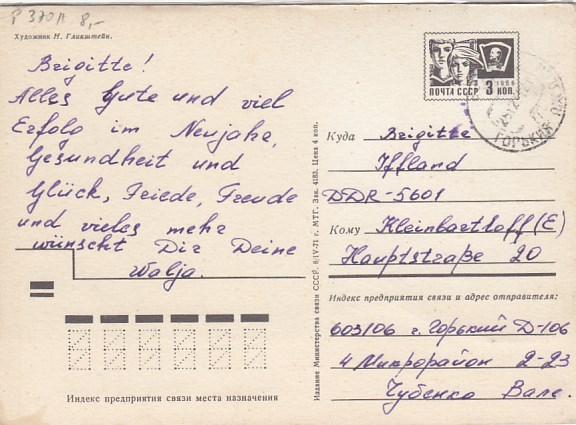 Р 370А 8,-
Художник Н. Гликштейн.
Brigitte!
Alles Gute und viel
Erfolg im Neujahr,
Gesundheit und
Glück, Friede, Freude
und vieles mehr
wünscht Dir Deine
Walja.
ПОЧТА СССР 3 КОП.
1966
ГОРЬКИЙ
Куда Brigitte
Iffland
DDR-5601
Кому Kleinbartloff (E)
Hauptstraße 20
Индекс предприятия связи и адрес отправителя:
603106 г. Горький Д-106
4 Микрорайон 2-23
Чубенко Вале.
Издание Министерства связи СССР. 8/IV-71 г. МТГ. Зак. 4183. Цена 4 коп.
Индекс предприятия связи места назначения